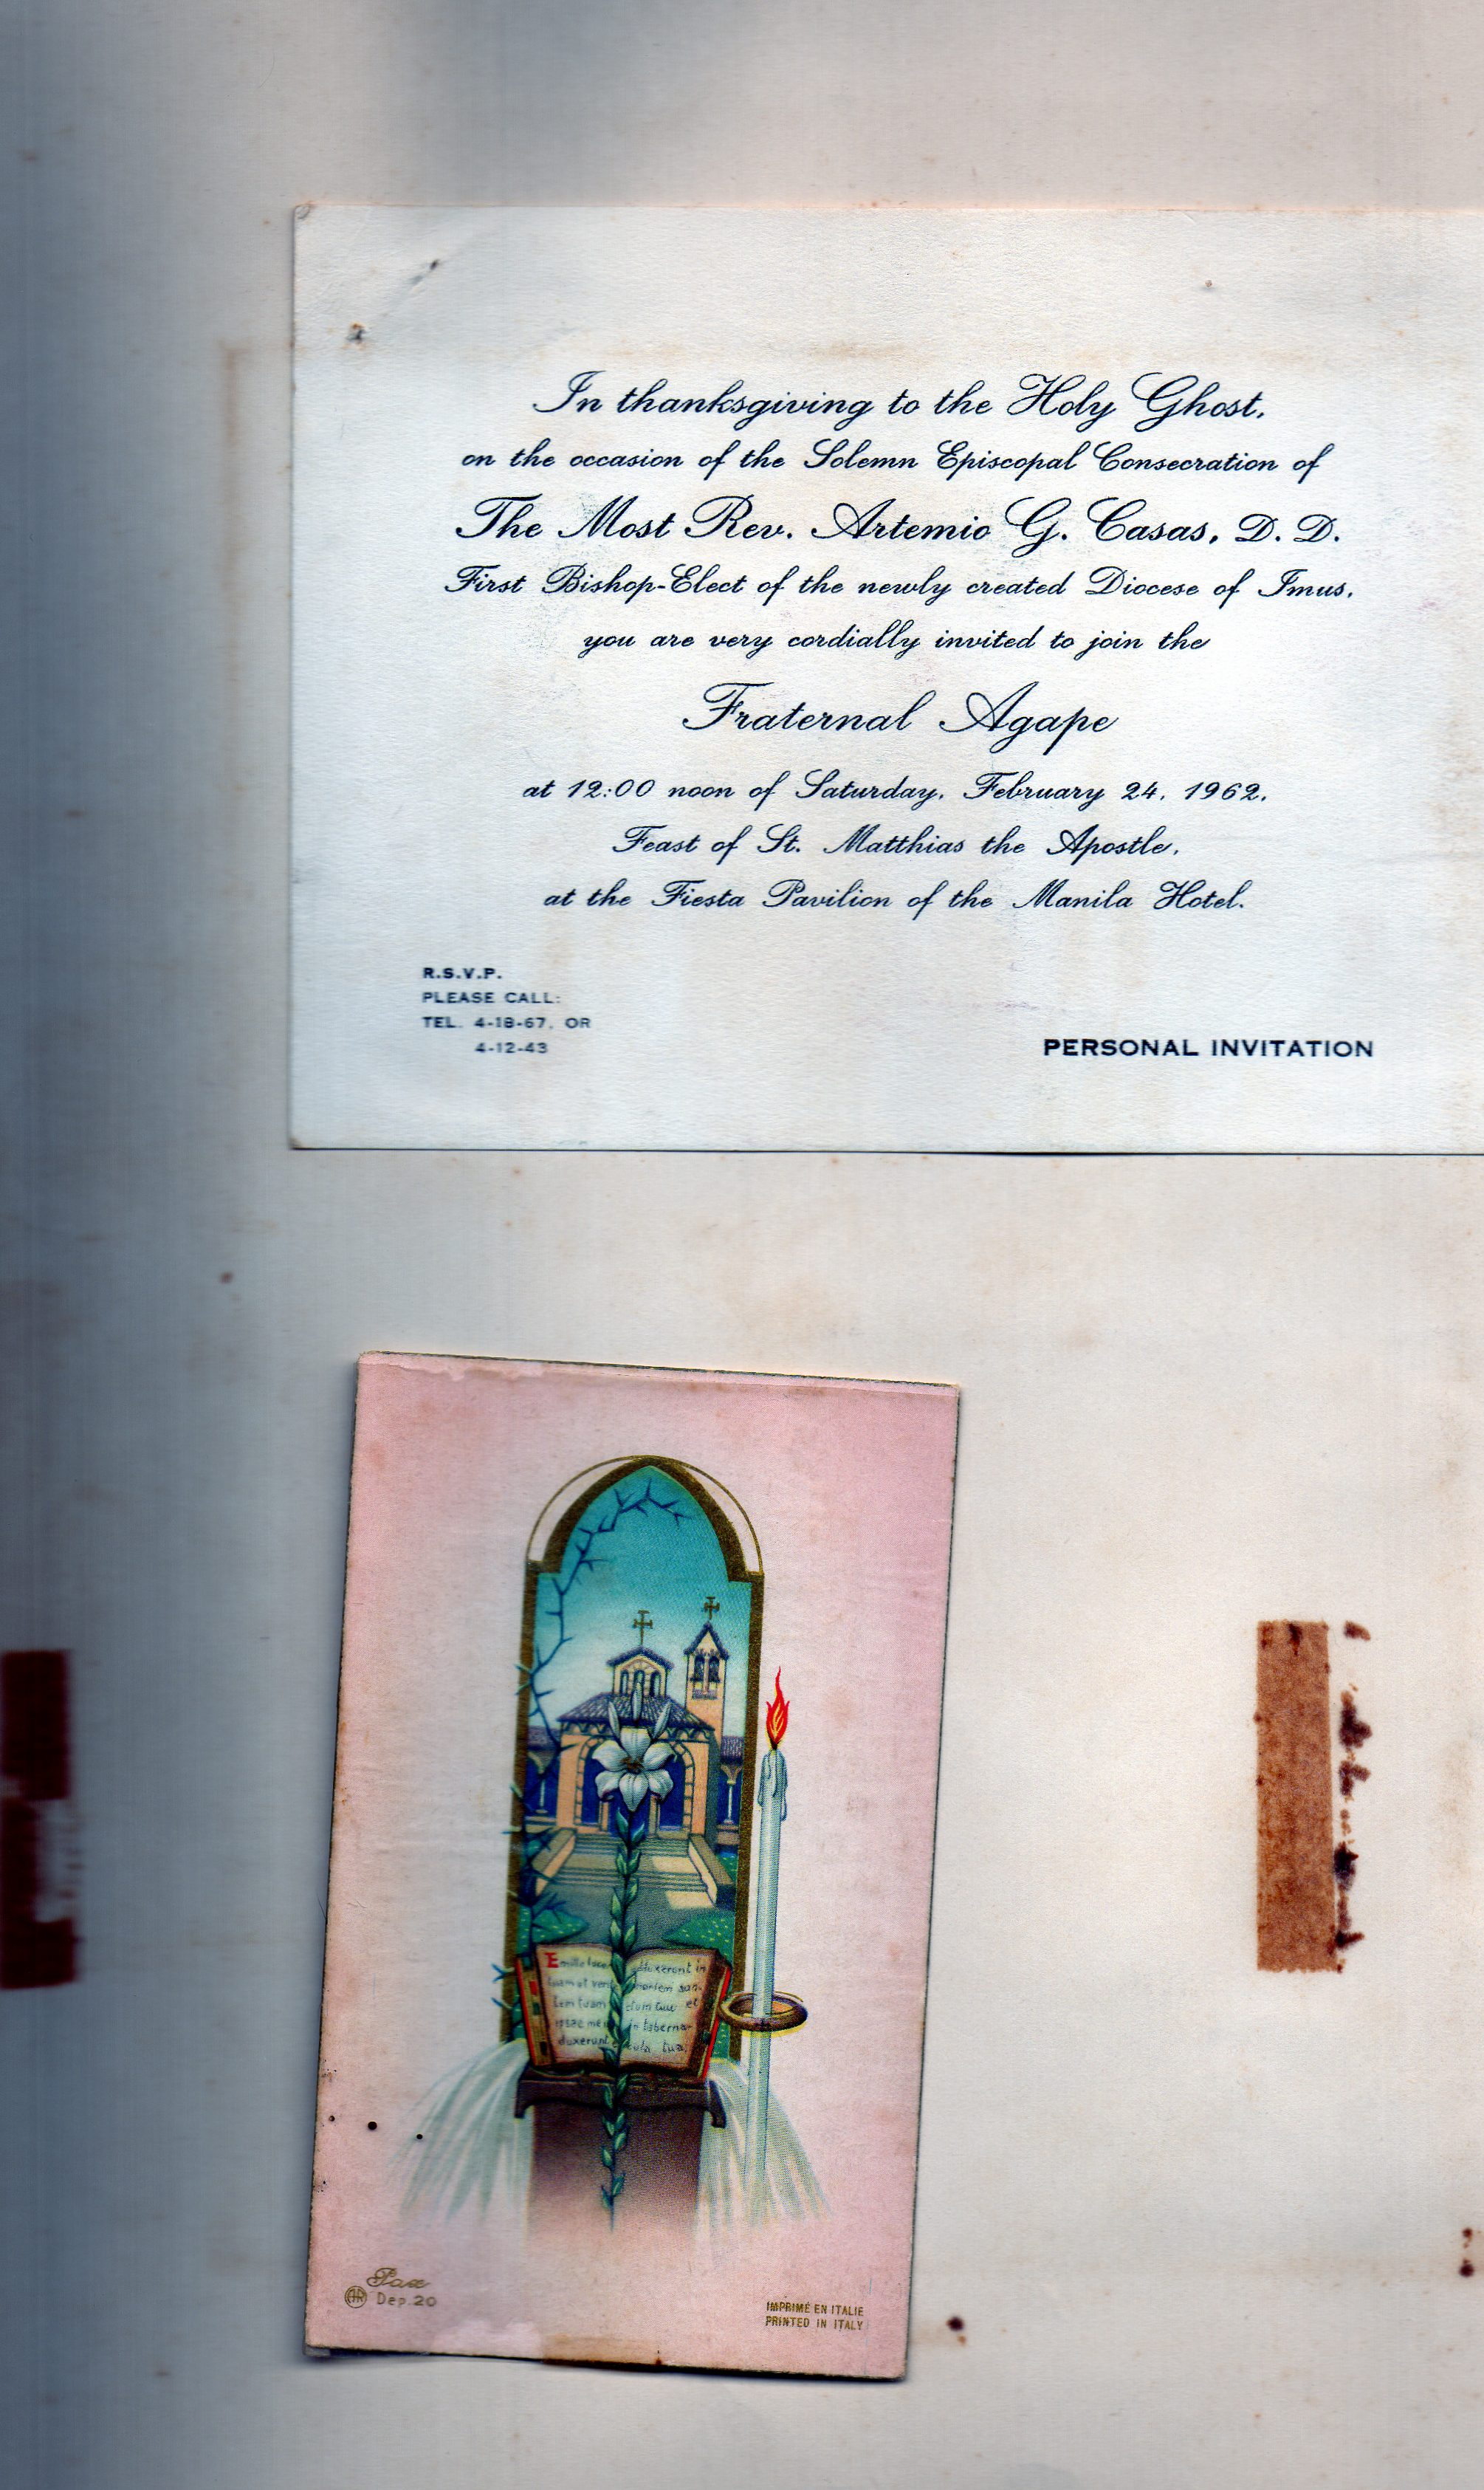 In thanksgiving to the Holy Ghost,
on the occasion of the Solemn Episcopal Consecration of
The Most Rev. Artemio G. Casas, D. D.
First Bishop-Elect of the newly created Diocese of Imus,
you are very cordially invited to join the
Fraternal Agape
at 12:00 noon of Saturday, February 24, 1962,
Feast of St. Matthias the Apostle,
at the Fiesta Pavilion of the Manila Hotel.
R.S.V.P.
PLEASE CALL:
TEL. 4-18-67, OR
4-12-43
PERSONAL INVITATION
Emitte luce
tuam et veri
tem tuam
ipsae me
duxerunt
adduxerunt in
montem san-
ctum tuu et
in taberna-
cula tua
Pax
AR Dep. 20
IMPRIMÉ EN ITALIE
PRINTED IN ITALY